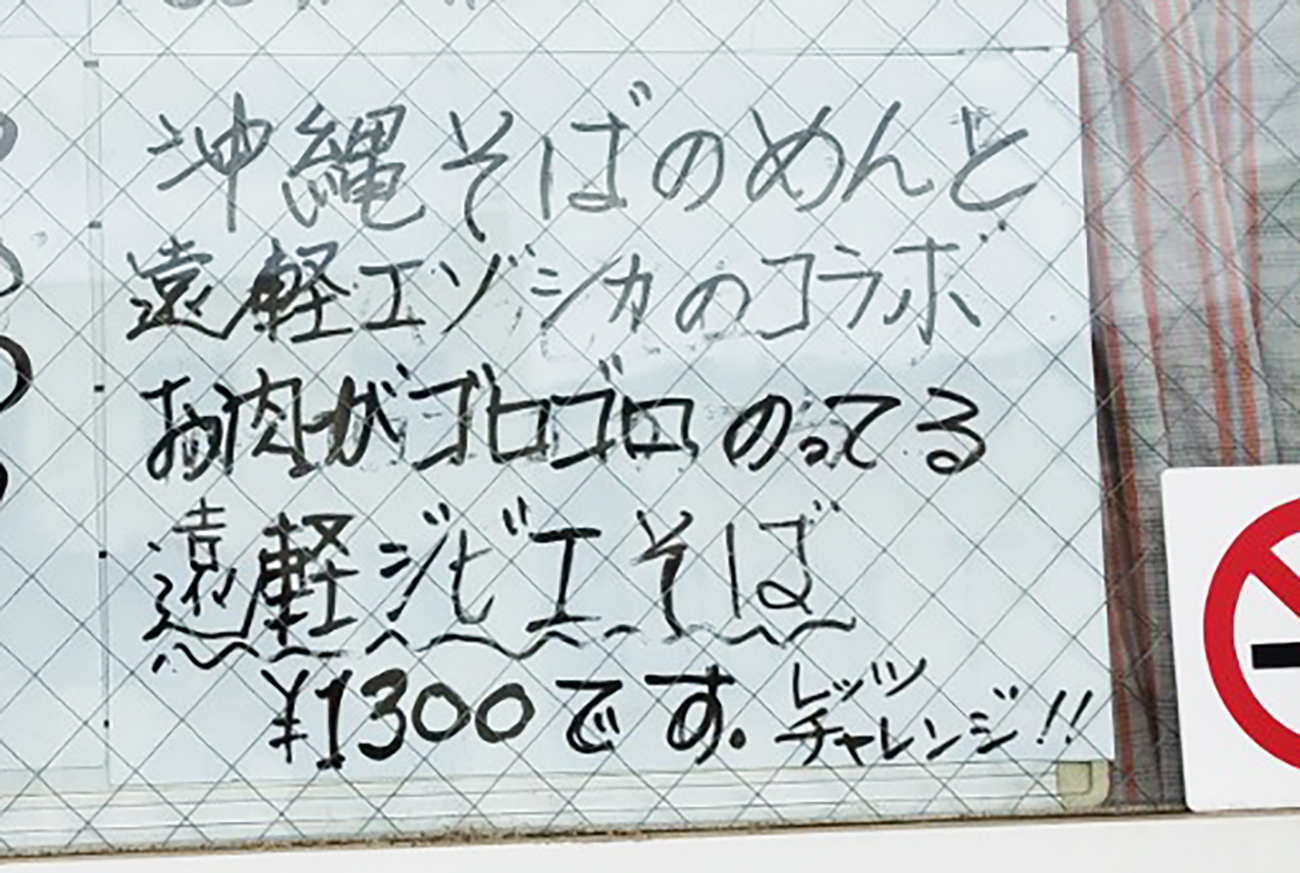 沖縄そばのめんと
遠軽エゾシカのコラボ
お肉がゴロゴロのってる
遠軽ジビエそば
¥1300です。レッツ
チャレンジ!!